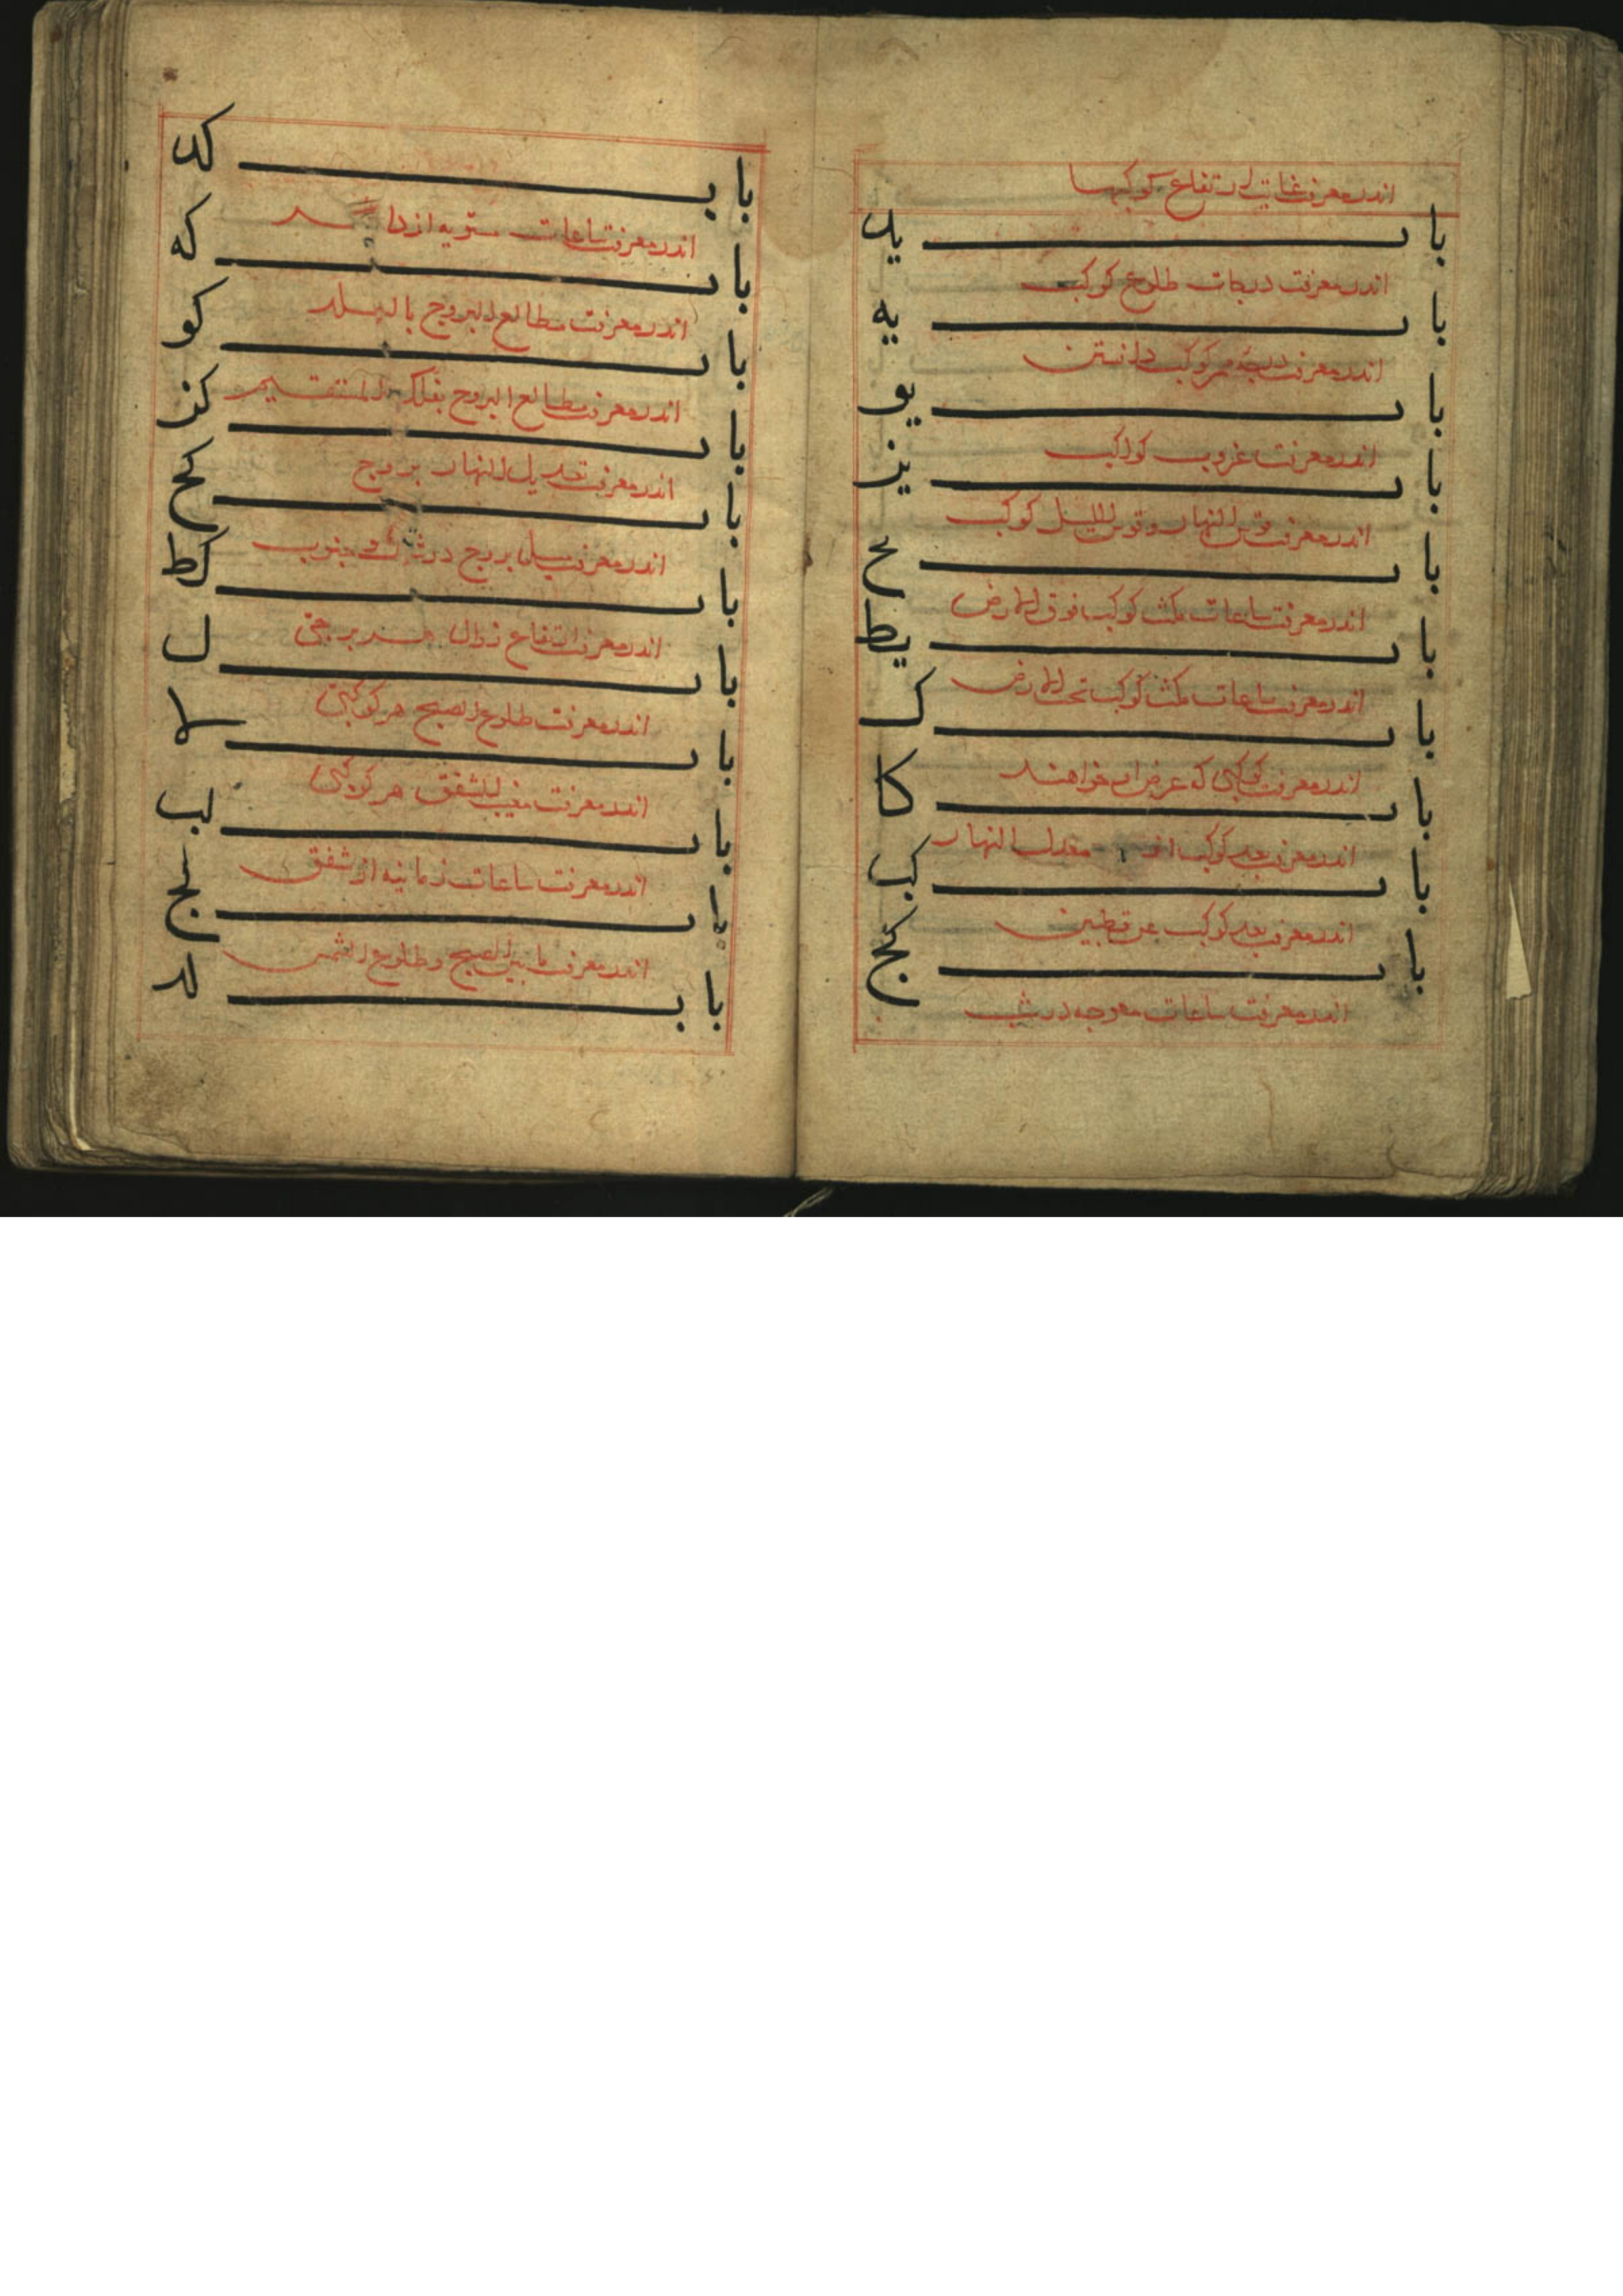 اندر معرفت غایت ارتفاع کوکبها
باب ید
اندر معرفت درجات طلوع کوکب
باب یه
اندر معرفت درجه ممر کوکب دانستن
باب یو
اندر معرفت غروب کواکب
باب یز
اندر معرفت قوس النهار و قوس اللیل کوکب
باب یح
اندر معرفت ساعات مکث کوکب فوق الارض
باب یط
اندر معرفت ساعات مکث کوکب تحت الارض
باب ک
اندر معرفت کوکبی که عرض او خواهند
باب کا
اندر معرفت بعد کوکب از معدل النهار
باب کب
اندر معرفت بعد کوکب عن قطبین
باب کج
اندر معرفت ساعات معوجه در شب
باب کد
اندر معرفت ساعات مستویه از
باب که
اندر معرفت مطالع البروج بالبلد
باب کو
اندر معرفت مطالع البروج بفلک المستقیم
باب کز
اندر معرفت تعدیل النهار بروج
باب کح
اندر معرفت میل بروج در شمال و جنوب
باب کط
اندر معرفت ارتفاع زوال هر برجی
باب ل
اندر معرفت طلوع الصبح هر کوکبی
باب لا
اندر معرفت مغیب الشفق هر کوکبی
باب لب
اندر معرفت ساعات زمانیه از شفق
باب لج
اندر معرفت ما بین الصبح و طلوع الشمس
باب لد